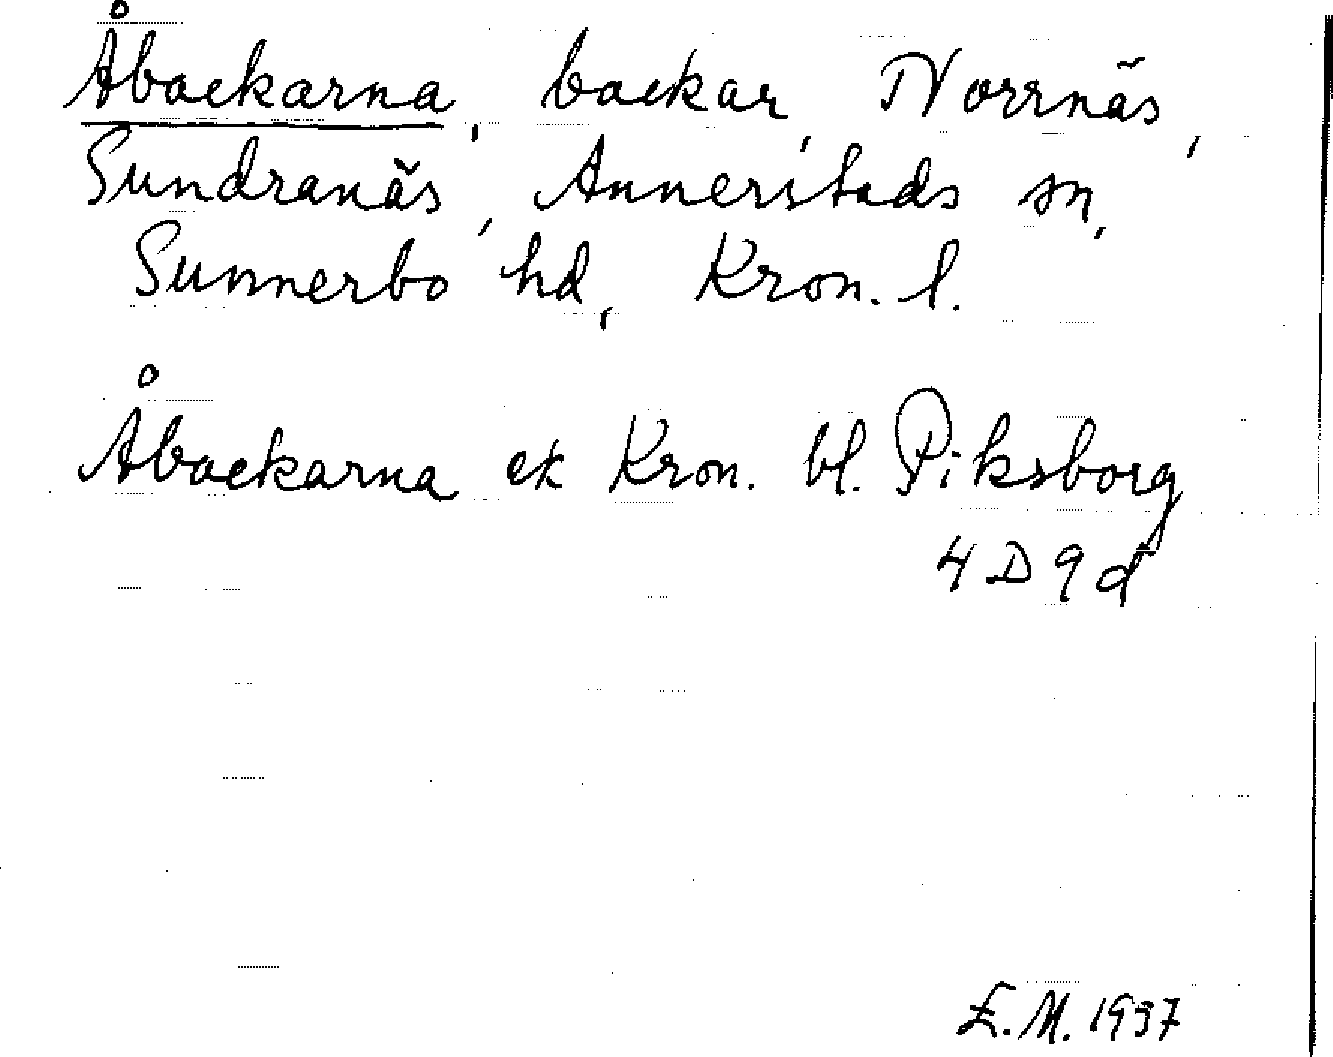 Åbackarna, backar, Norrnäs,
Sundranäs, Annerstads sn,
Sunnerbo hd, Kron. l.
Åbackarna ek Kron. bl. Piksborg
4 D 9 d
E. M. 1937